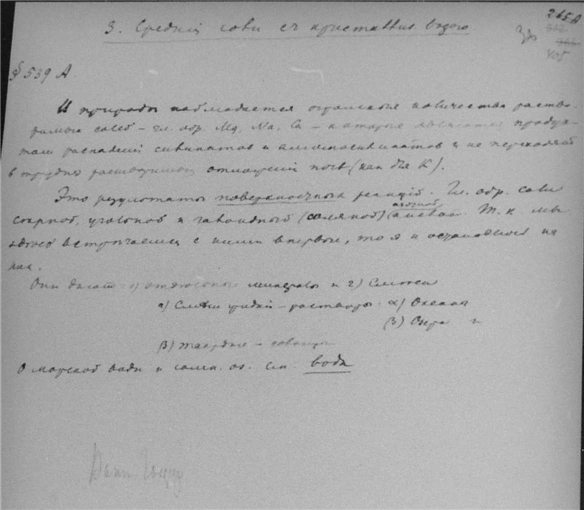 265А
3. Средние соли с кристаллиз. водою
405
§ 539 А
В природе наблюдается огромное количество раство-
римых солей – гл. обр. Mg, Na, Ca – которые являются продук-
тами распадения силикатов и алюмосиликатов и не переходят
в трудно растворимые отношения почв (как для К).
Это результаты поверхностных реакций. Гл. обр. соли
серной, угольной и галоидных (соляной) (азотной Т. к. мы
здесь встречаемся с ними впервые, то я и остановлюсь на
них.
Они дают 1) отдельные минералы и 2) смеси
α) жидкие – растворы. α) Океана
β) Озера
β) твердые –
О морской воде и солен. оз. см. вода